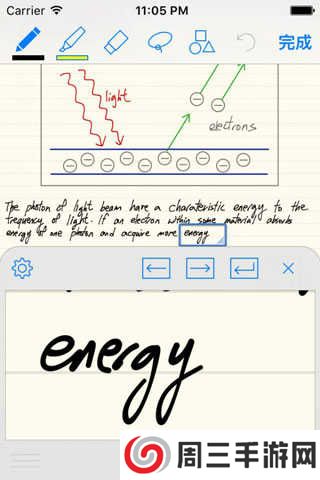 Carrier 11:05 PM
完成
light
electrons
The photon of light beam have a charateristic energy to the
frequency of light. If an electron within some material absorbs
energy of one photon and acquire more energy
energy
周三手游网